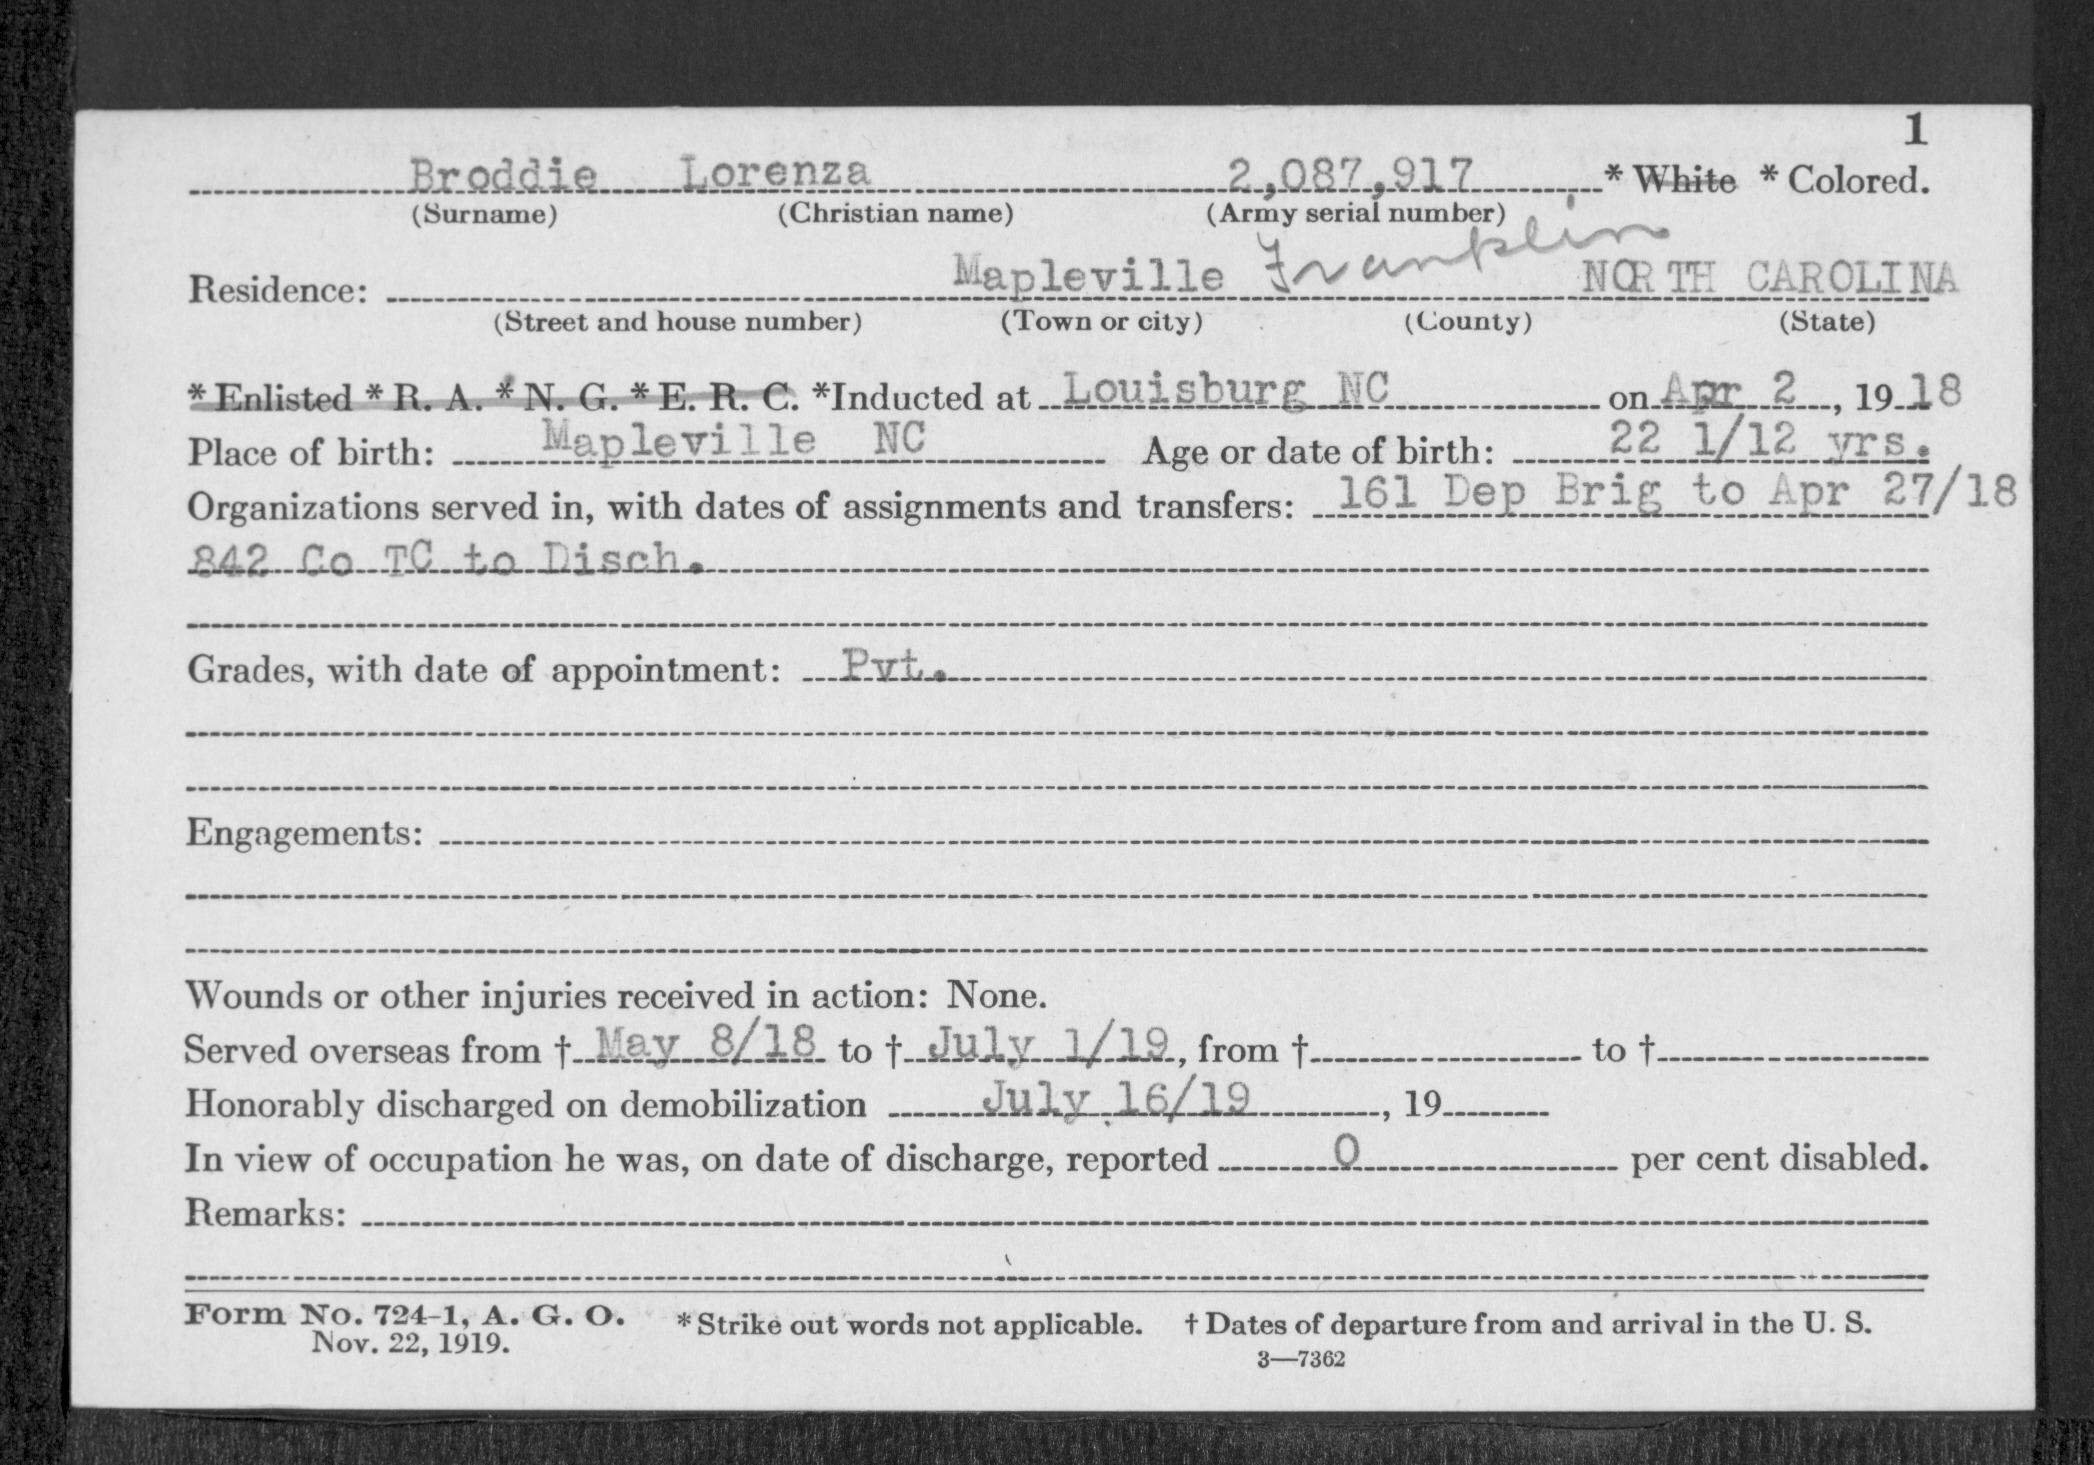 1
Broddie Lorenza 2,087,917 * White * Colored.
(Surname) (Christian name) (Army serial number)
Residence: Mapleville Franklin NORTH CAROLINA
(Street and house number) (Town or city) (County) (State)
* Enlisted * R. A. * N. G. * E. R. C. *Inducted at Louisburg NC on Apr 2, 1918
Place of birth: Mapleville NC Age or date of birth: 22 1/12 yrs.
Organizations served in, with dates of assignments and transfers: 161 Dep Brig to Apr 27/18
842 Co TC to Disch.
Grades, with date of appointment: Pvt.
Engagements:
Wounds or other injuries received in action: None.
Served overseas from † May 8/18 to † July 1/19, from † to †
Honorably discharged on demobilization July 16/19, 19
In view of occupation he was, on date of discharge, reported 0 per cent disabled.
Remarks:
Form No. 724-1, A. G. O. * Strike out words not applicable. † Dates of departure from and arrival in the U. S.
Nov. 22, 1919.
3—7362